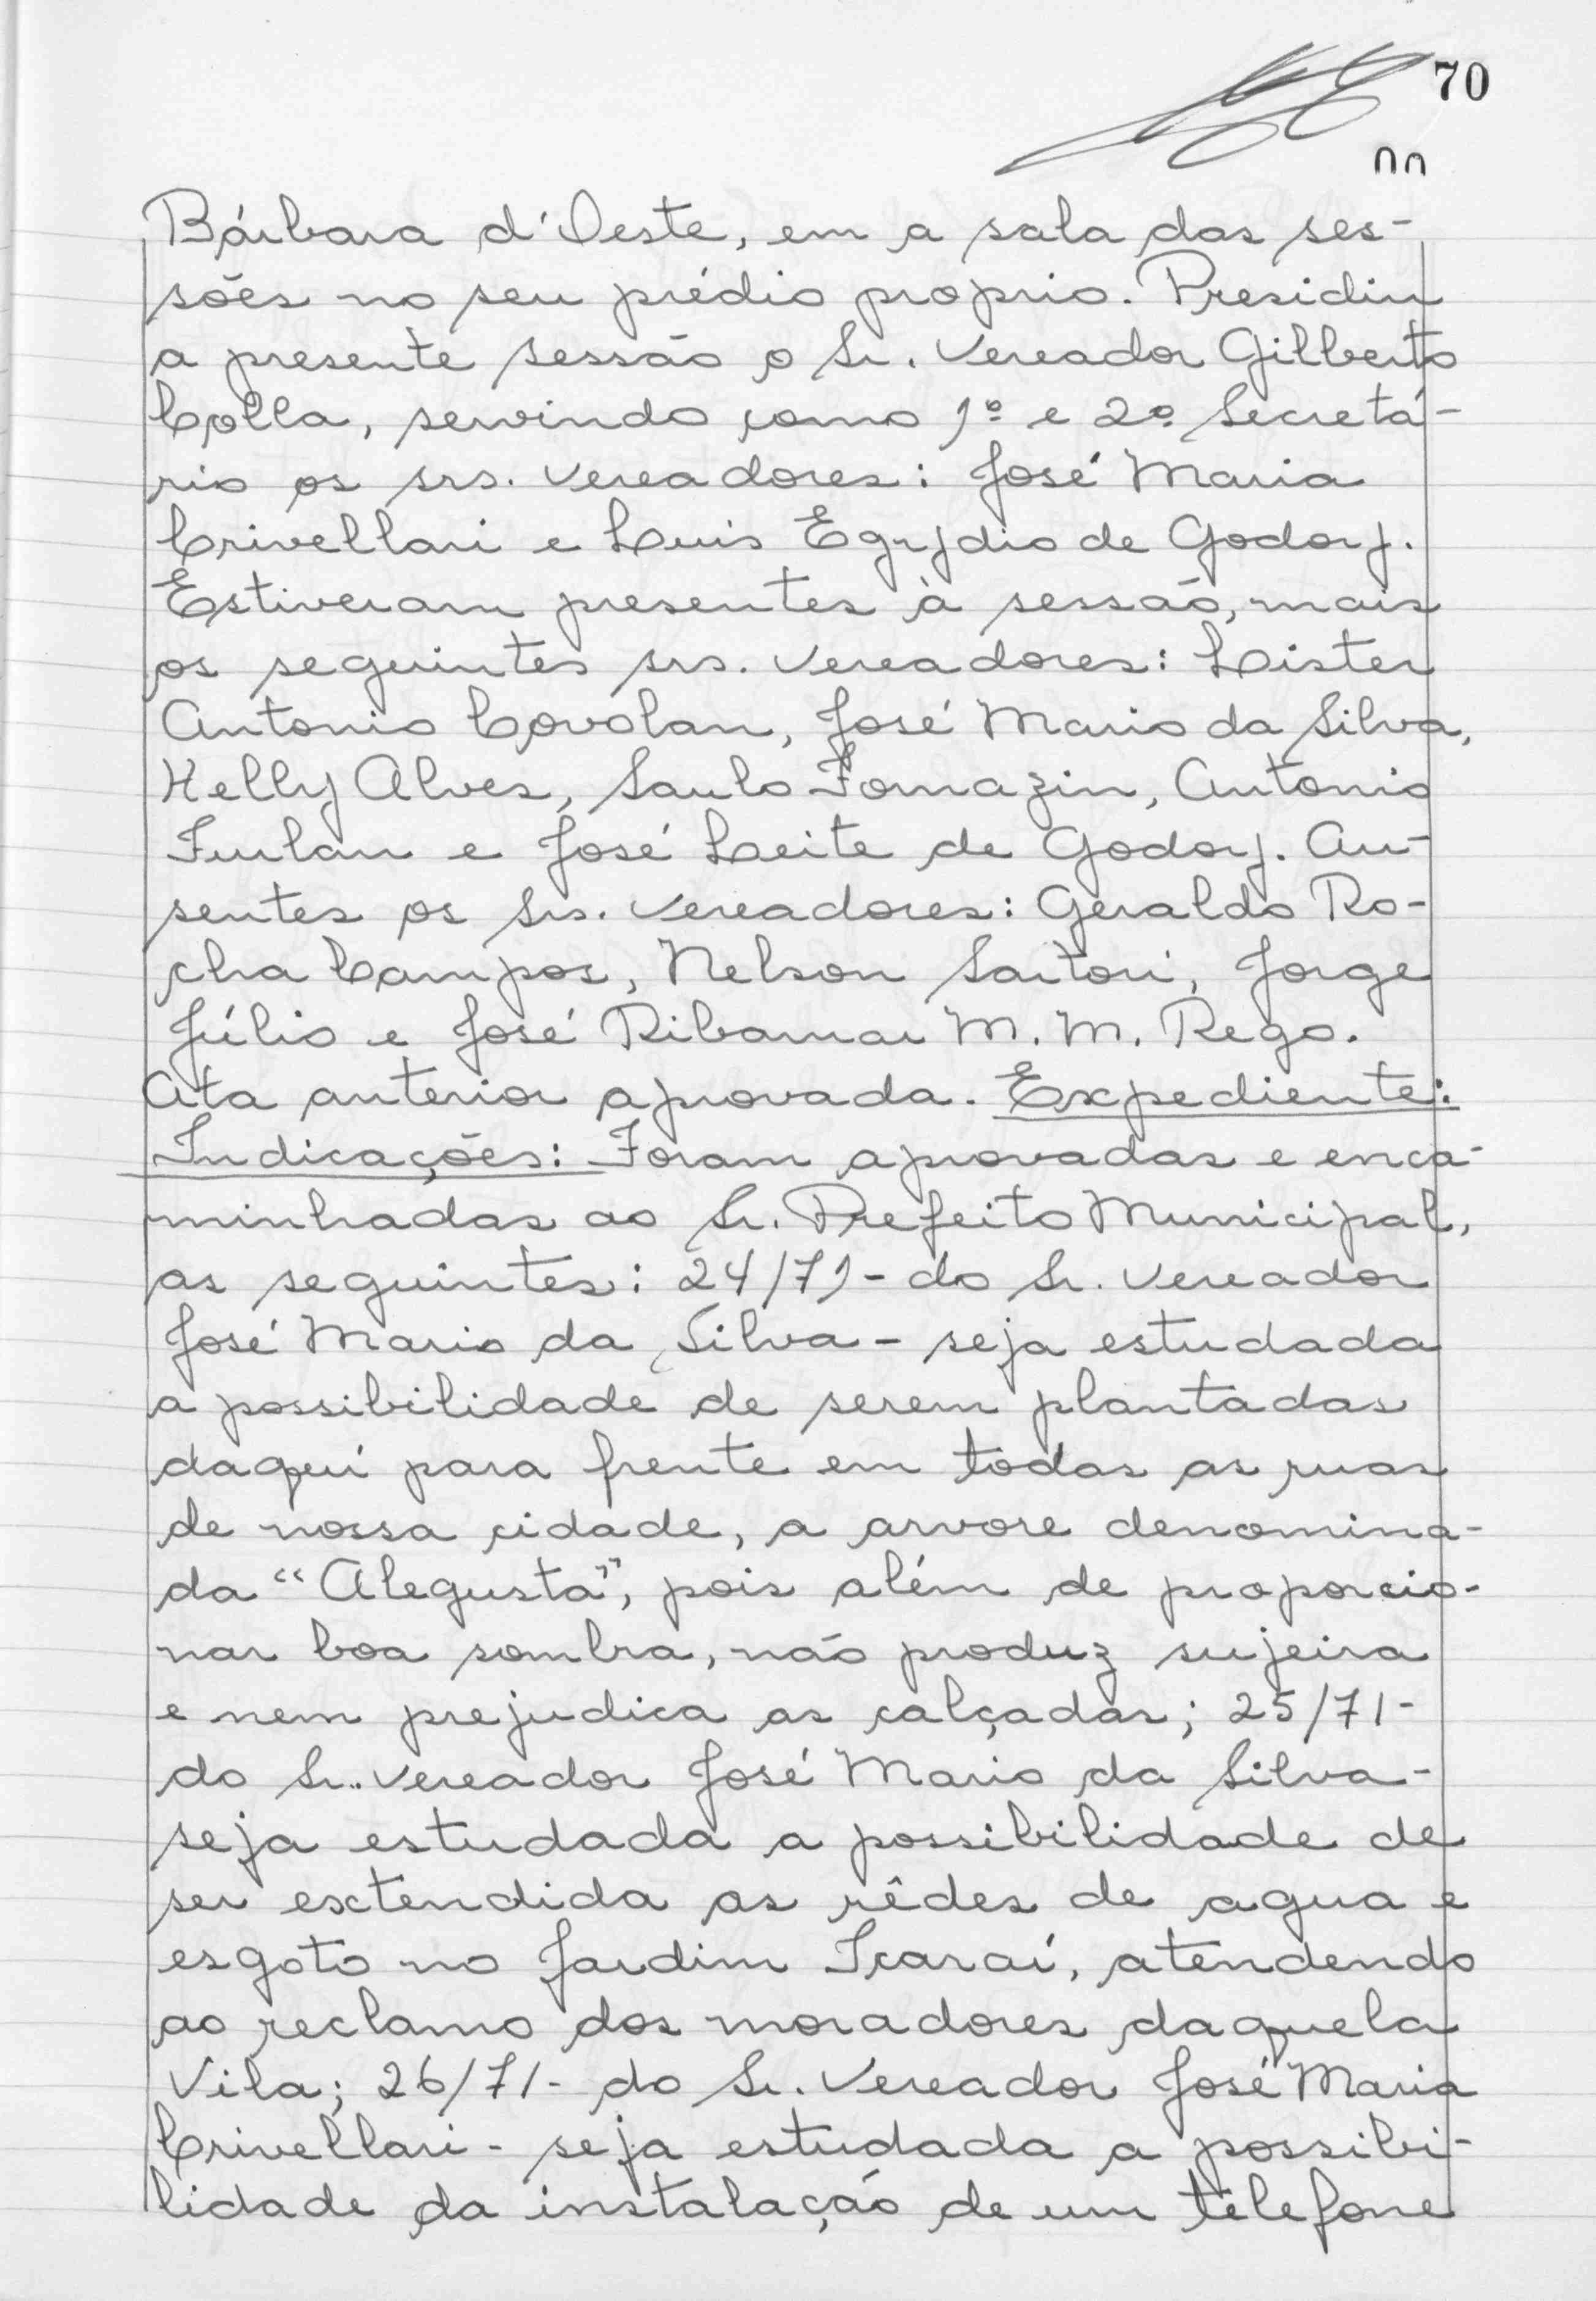 70
Bárbara d'Oeste, em a sala das ses-
sões no seu prédio proprio. Presidiu
a presente sessão o Sr. Vereador Gilberto
Colla, servindo como 1º e 2º Secretá-
rio os srs. Vereadores: José Maria
Crivellari e Luis Egydio de Godoy.
Estiveram presentes à sessão, mais
os seguintes srs. Vereadores: Lister
Antonio Covolan, José Mario da Silva,
Kelly Alves, Saulo Fornazin, Antonio
Furlan e José Leite de Godoy. Au-
sentes os Srs. Vereadores: Geraldo Ro-
cha Campos, Nelson Sartori, Jorge
Júlio e José Ribamar M. M. Rego.
Ata anterior aprovada. Expediente:
Indicações: Foram aprovadas e enca-
minhadas ao Sr. Prefeito Municipal,
as seguintes: 24/71- do Sr. Vereador
José Mario da Silva - seja estudada
a possibilidade de serem plantadas
daquí para frente em todas as ruas
de nossa cidade, a arvore denomina-
da "Alegusta", pois além de proporcio-
nar boa sombra, não produz sujeira
e nem prejudica as calçadas; 25/71-
do Sr.. Vereador José Mario da Silva-
seja estudada a possibilidade de
ser extendida as rêdes de agua e
esgoto no Jardim Icaraí, atendendo
ao reclamo dos moradores daquela
Vila; 26/71- do Sr. Vereador José Maria
Crivellari - seja estudada a possibi-
lidade da instalação de um telefone